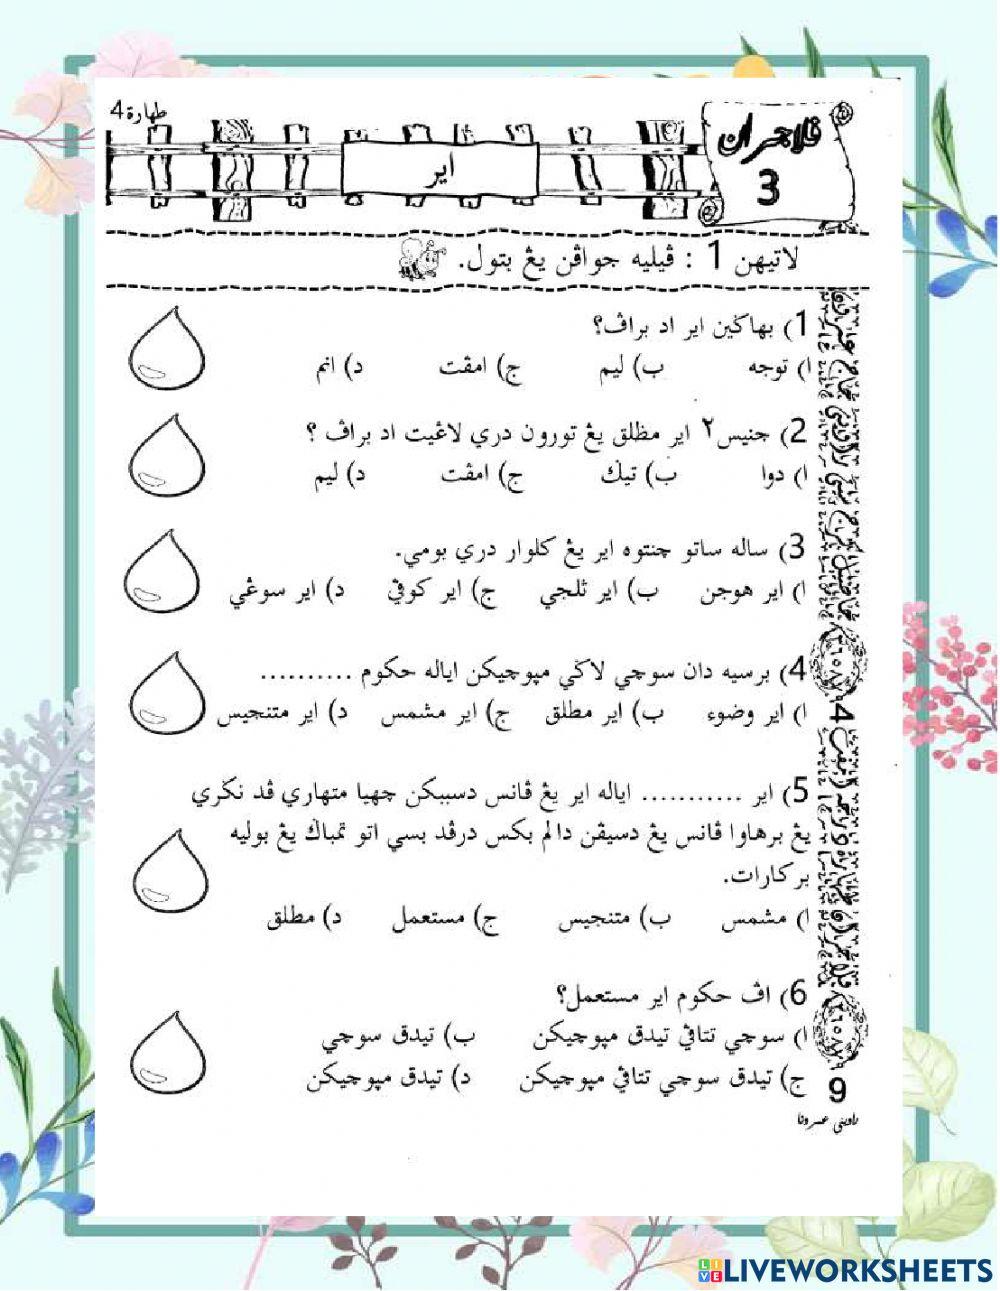 طهارة 4
ڤلاجرن
3
اير
لاتيهن 1 : ڤيليه جواڤن يڠ بتول.
1) بهاݢين اير اد براڤ؟
ا) توجه ب) ليم ج) امڤت د) انم
2) جنيس٢ اير مطلق يڠ تورون دري لاڠيت اد براڤ ؟
ا) دوا ب) تيݢ ج) امڤت د) ليم
3) ساله ساتو چنتوه اير يڠ كلوار دري بومي.
ا) اير هوجن ب) اير ثلجي ج) اير كوڤي د) اير سوڠي
4) برسيه دان سوچي لاݢي مپوچيكن اياله حكوم ..........
ا) اير وضوء ب) اير مطلق ج) اير مشمس د) اير متنجيس
5) اير ........... اياله اير يڠ ڤانس دسببكن چهيا متهاري ڤد نݢري
يڠ برهاوا ڤانس يڠ دسيڤن دالم بكس درڤد بسي اتو تمباݢ يڠ بوليه
بركارات.
ا) مشمس ب) متنجيس ج) مستعمل د) مطلق
6) اڤ حكوم اير مستعمل؟
ا) سوچي تتاڤي تيدق مپوچيكن ب) تيدق سوچي
ج) تيدق سوچي تتاڤي مپوچيكن د) تيدق مپوچيكن
9
LIVEWORKSHEETS